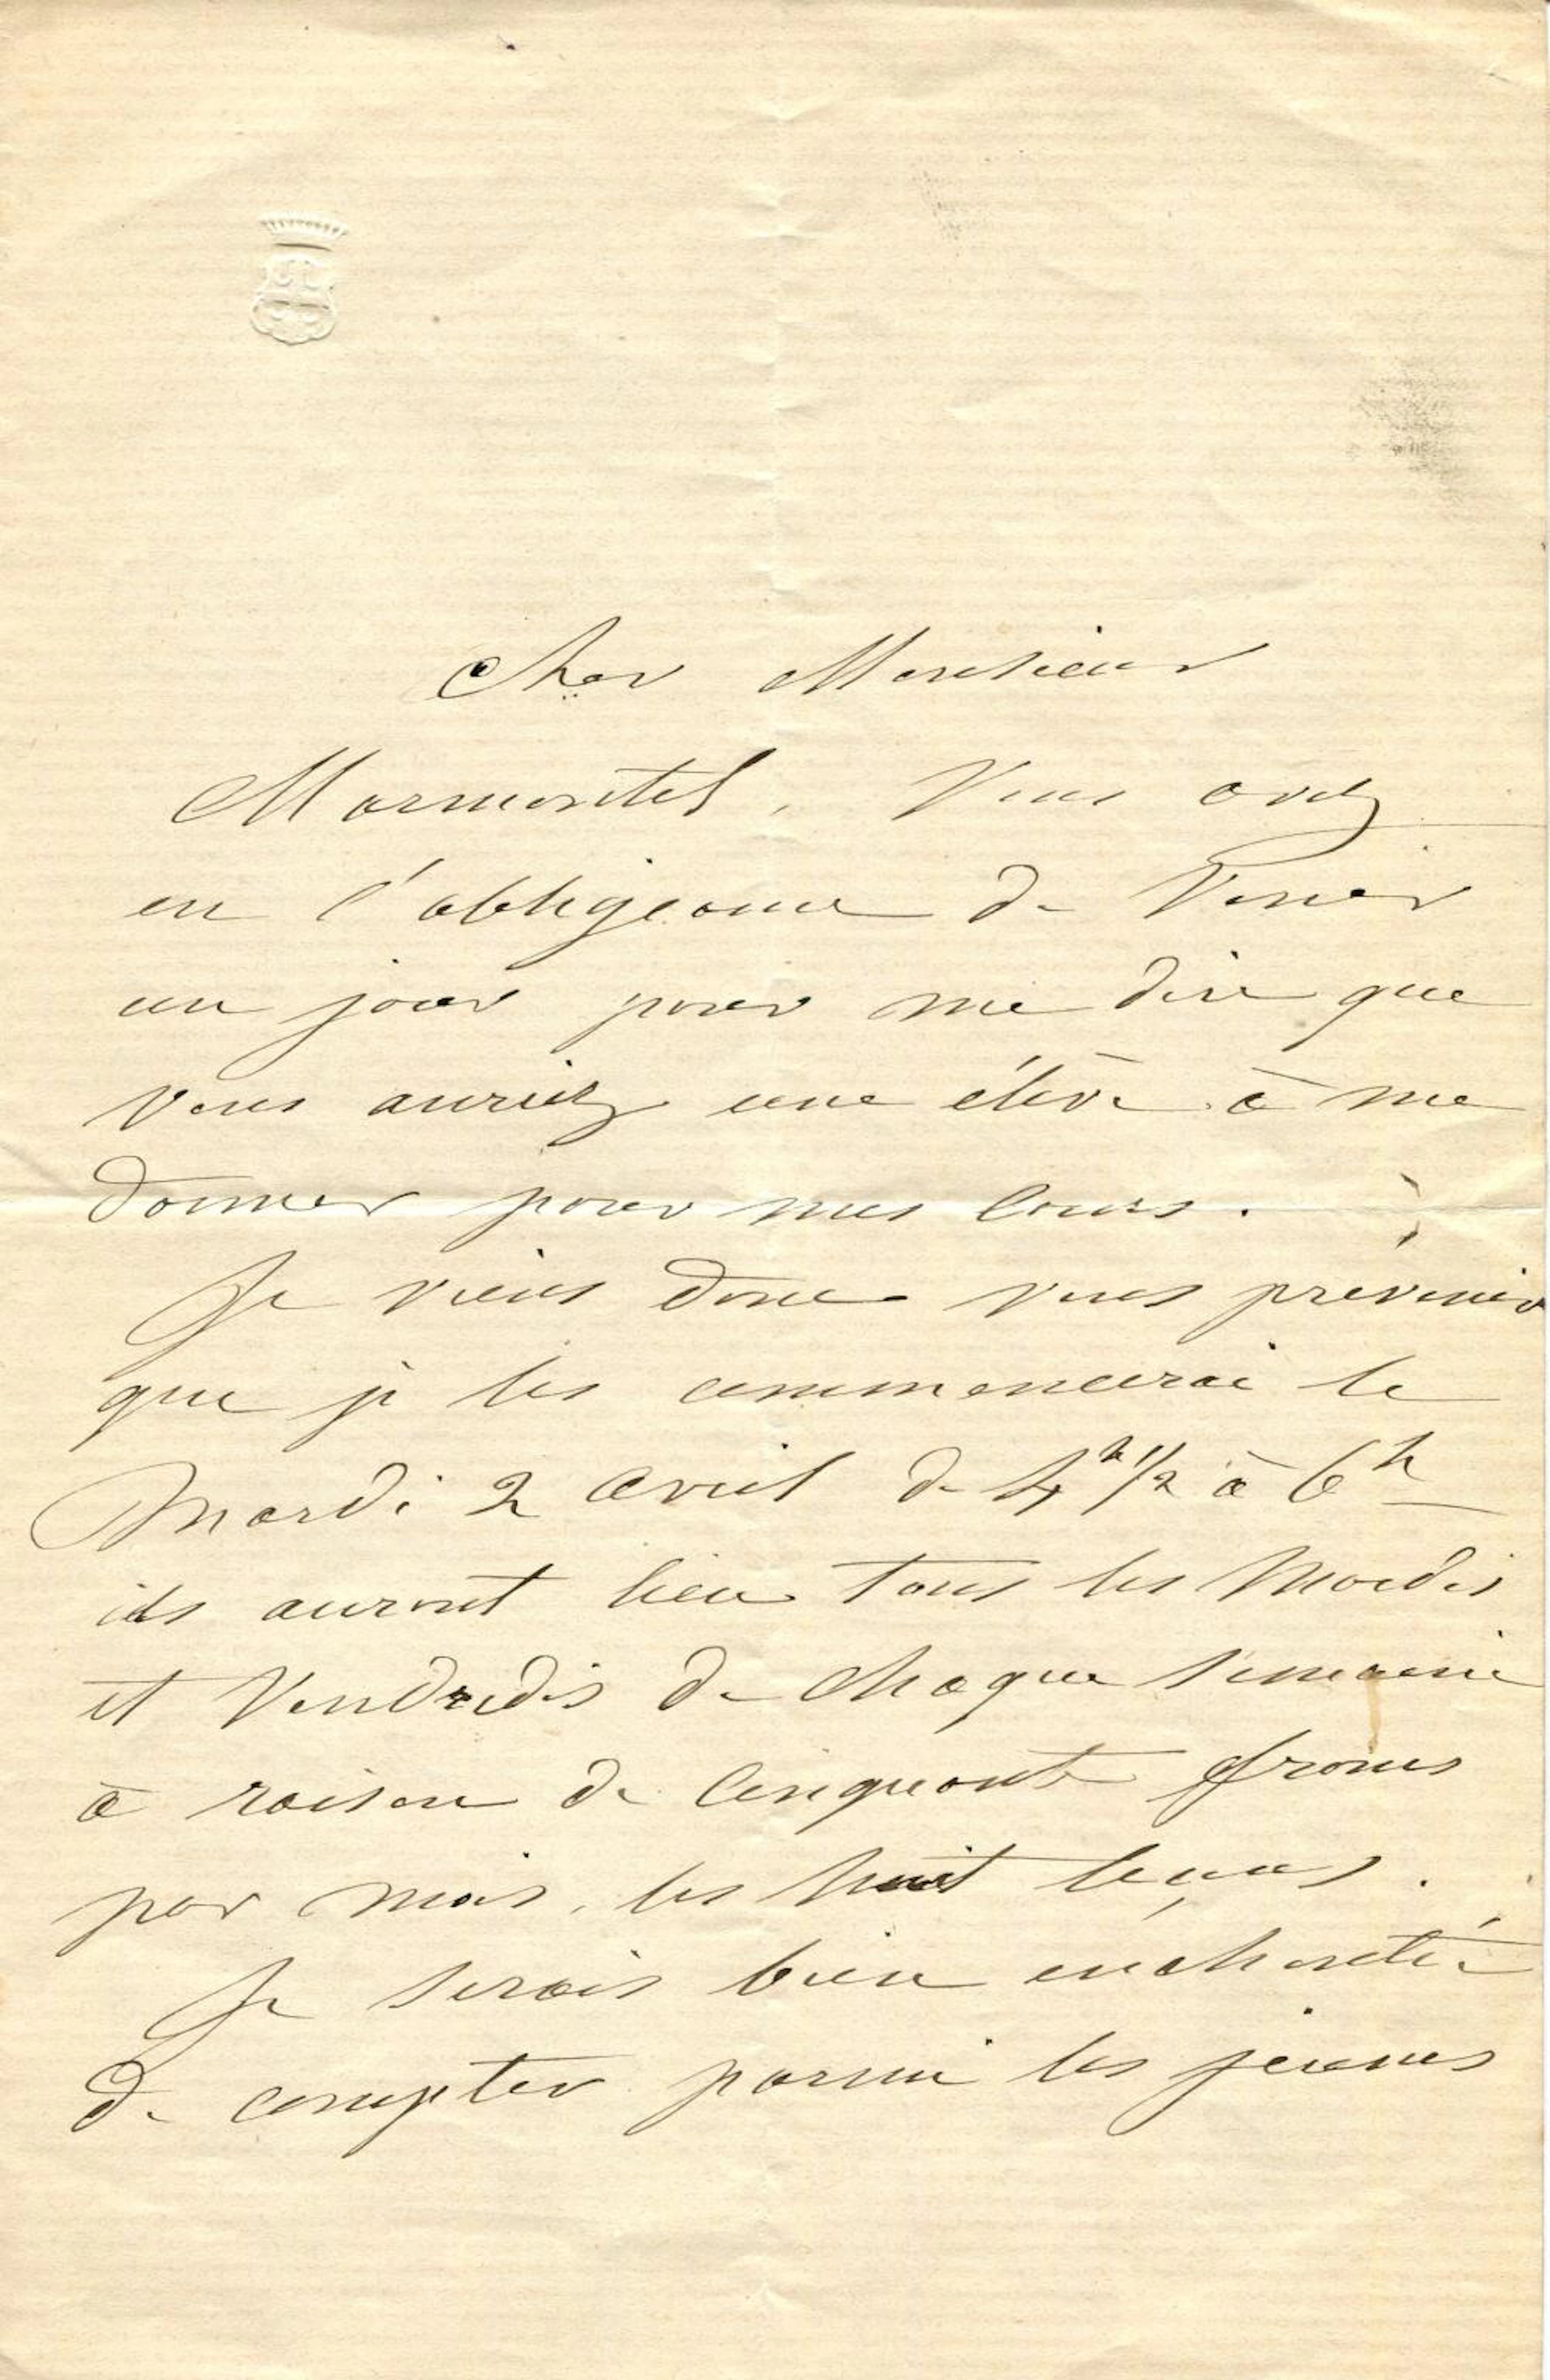 Cher Monsieur
Marmontel, Vous avez
eu l'obligeance de Venir
un jour pour me dire que
vous auriez une élève à me
donner pour mes Cours.
Je viens donc vous prévenir
que je les commencerai le
Mardi 2 Avril de 4h 1/2 à 6h
ils auront lieu tous les Mardis
et Vendredis de chaque semaine
à raison de Cinquante francs
par mois, les huit leçons.
Je serais bien enchantée
de compter parmi les jeunes